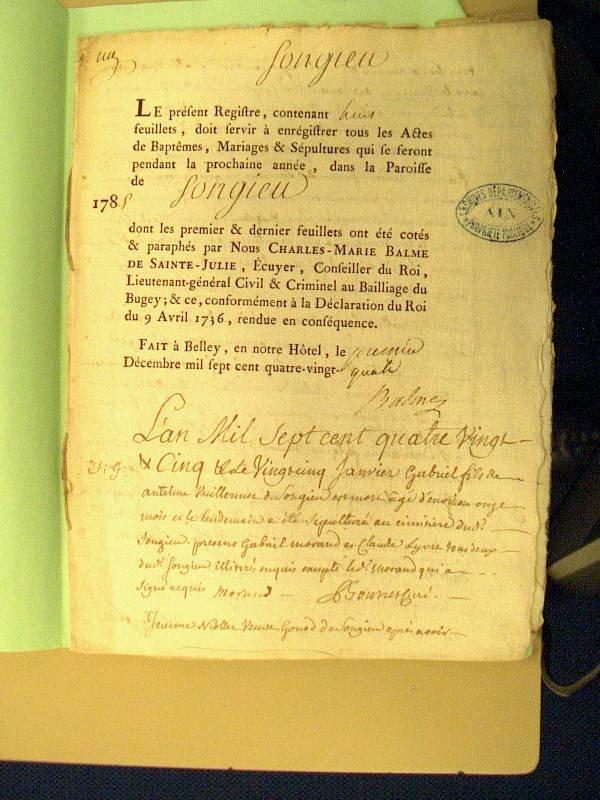 Songieu
LE préſent Regiſtre, contenant huit
feuillets, doit ſervir à enrégiſtrer tous les Actes
de Baptêmes, Mariages & Sépultures qui ſe feront
pendant la prochaine année, dans la Paroiſſe
de Songieu
1785
dont les premier & dernier feuillets ont été cotés
& paraphés par Nous CHARLES-MARIE BALME
DE SAINTE-JULIE, Écuyer, Conſeiller du Roi,
Lieutenant-général Civil & Criminel au Bailliage du
Bugey; & ce, conformément à la Déclaration du Roi
du 9 Avril 1736, rendue en conſéquence.
FAIT à Belley, en notre Hôtel, le premier
Décembre mil ſept cent quatre-vingt-quatre
Balme
ARCHIVES DÉPARTEMENTALES
AIN
PROPRIÉTÉ PUBLIQUE
L'an Mil Sept cent quatre Vingt
Cinq & le Vingt cinq Janvier Gabriel fils de
antelme Vuillermet du Songieu est mort âgé d'environ onze
mois et le lendemain a été sepulturé au cimitière dud.
Songieu. presens Gabriel morand et Claude tous deux
dud. Songieu illitérés enquis excepté led. Morand qui a
signé requis morand curé.
Jeanne Veuve Gonod de Songieu après avoir